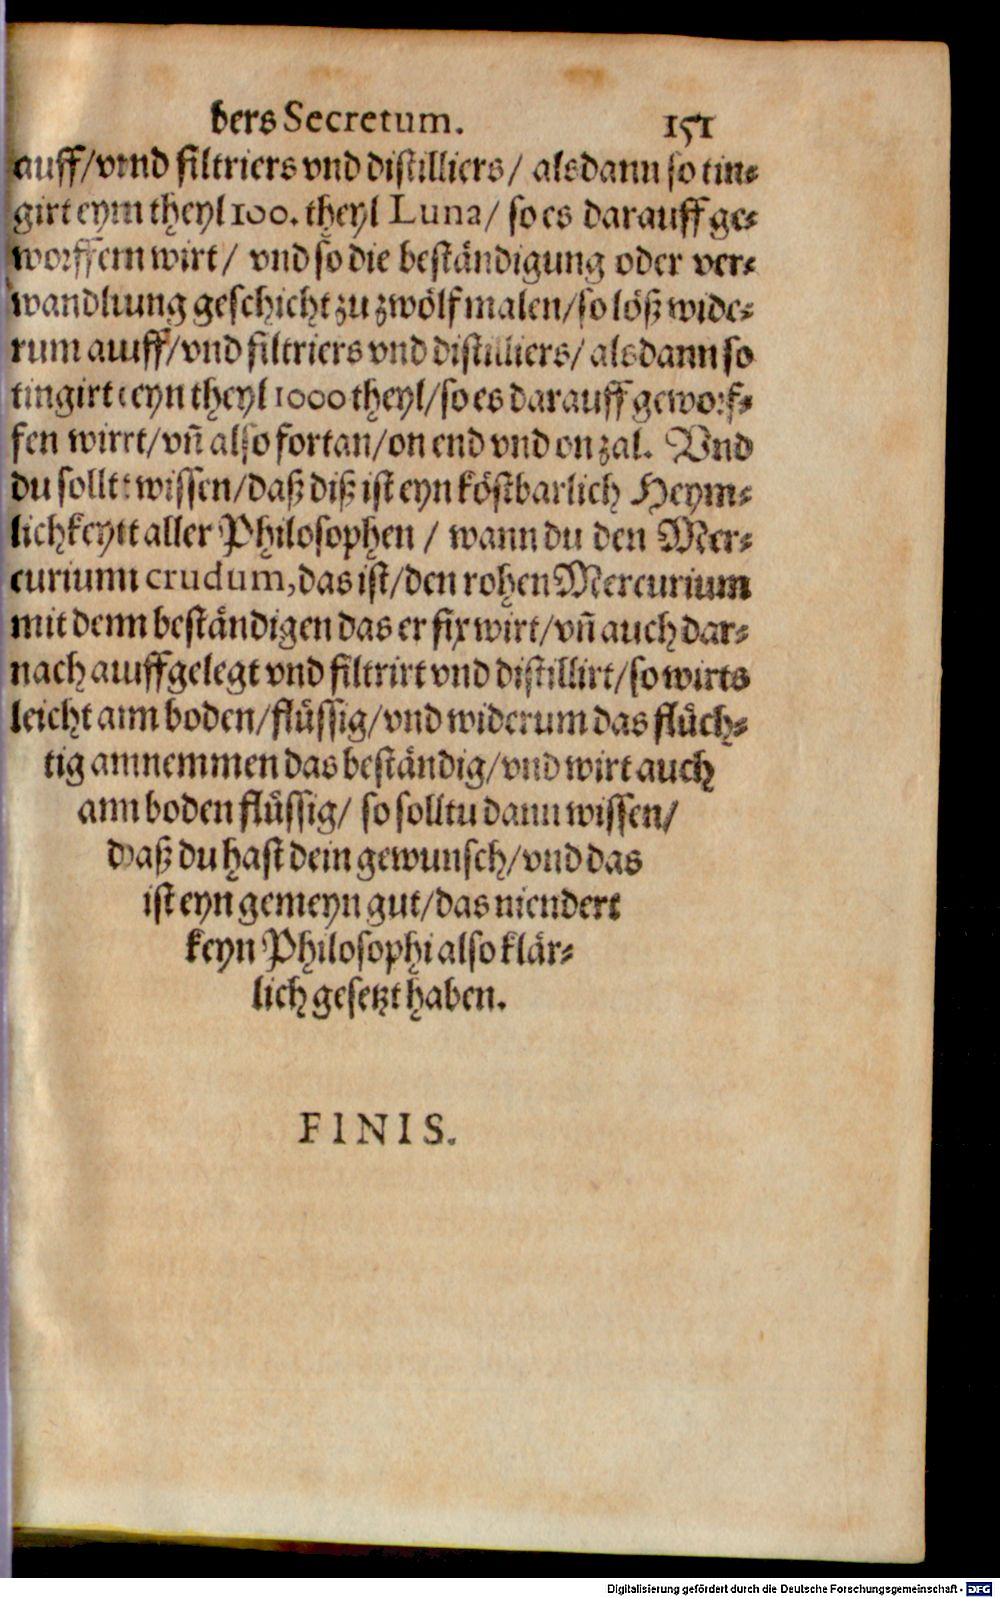 bers Secretum. 151
auff/vnd filtriers vnd distilliers/ alsdann so tin⸗
girt eyn theyl 100. theyl Luna/ so es darauff ge⸗
worffen wirt/ vnd so die beständigung oder ver⸗
wandlung geschicht zu zwölf malen/so löß wide⸗
rum auff/vnd filtriers vnd distilliers/alsdann so
tingirt eyn theyl 1000 theyl/so es darauff geworf⸗
fen wirt/vñ also fortan/on end vnd on zal. Vnd
du sollt wissen/daß diß ist eyn köstbarlich Heym⸗
lichkeyt aller Philosophen / wann du den Mer⸗
curium crudum, das ist/den rohen Mercurium
mit dem beständigen das er fix wirt/vñ auch dar⸗
nach auffgelegt vnd filtrirt vnd distillirt/so wirts
leicht am boden/flüssig/vnd widerum das flüch⸗
tig annemmen das beständig/vnd wirt auch
am boden flüssig/ so solltu dann wissen/
daß du hast dein gewunsch/vnd das
ist eyn gemeyn gut/das niendert
keyn Philosophi also klär⸗
lich gesetzt haben.
FINIS.
Digitalisierung gefördert durch die Deutsche Forschungsgemeinschaft - DFG